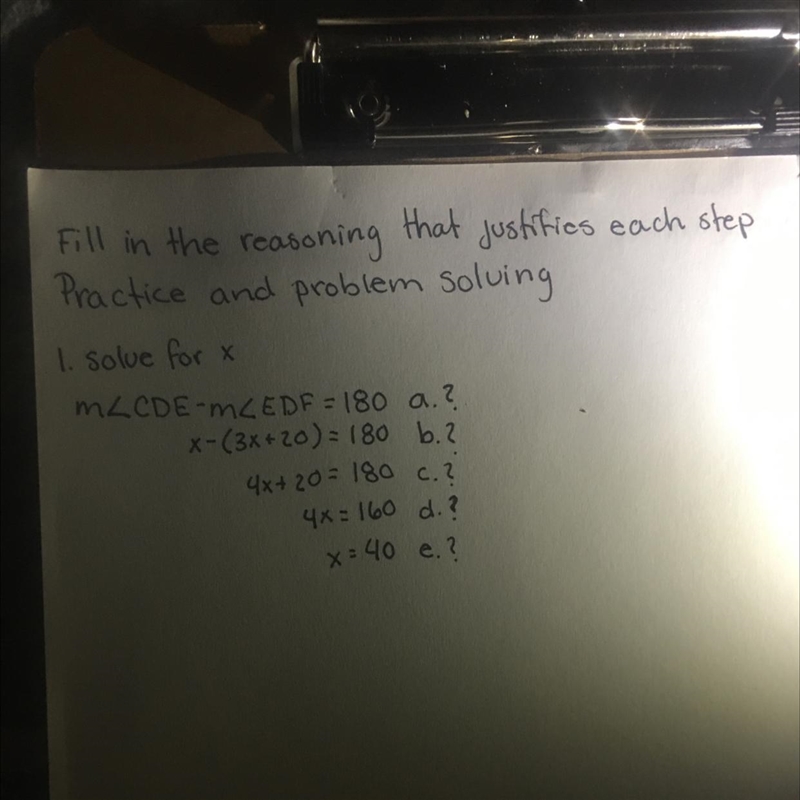 Fill in the reasoning that justifies each step
Practice and problem solving
1. solve for x
m∠CDE-m∠EDF=180 a.?
x-(3x+20)=180 b.?
4x+20=180 c.?
4x=160 d.?
x=40 e.?